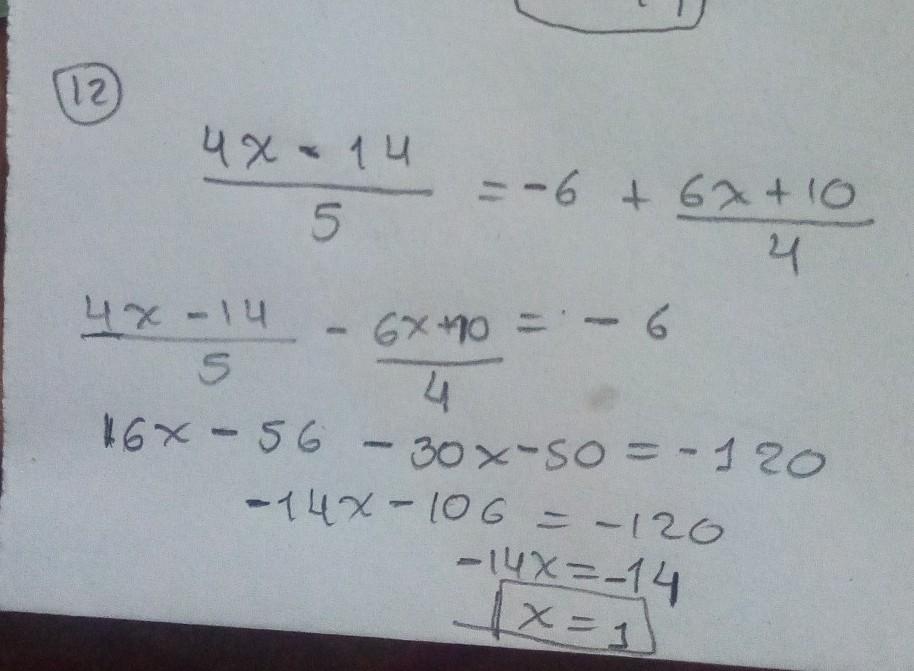 12
(4x - 14)/5 = -6 + (6x + 10)/4
(4x - 14)/5 - (6x + 10)/4 = - 6
16x - 56 - 30x - 50 = -120
-14x - 106 = -120
-14x = -14
x = 1